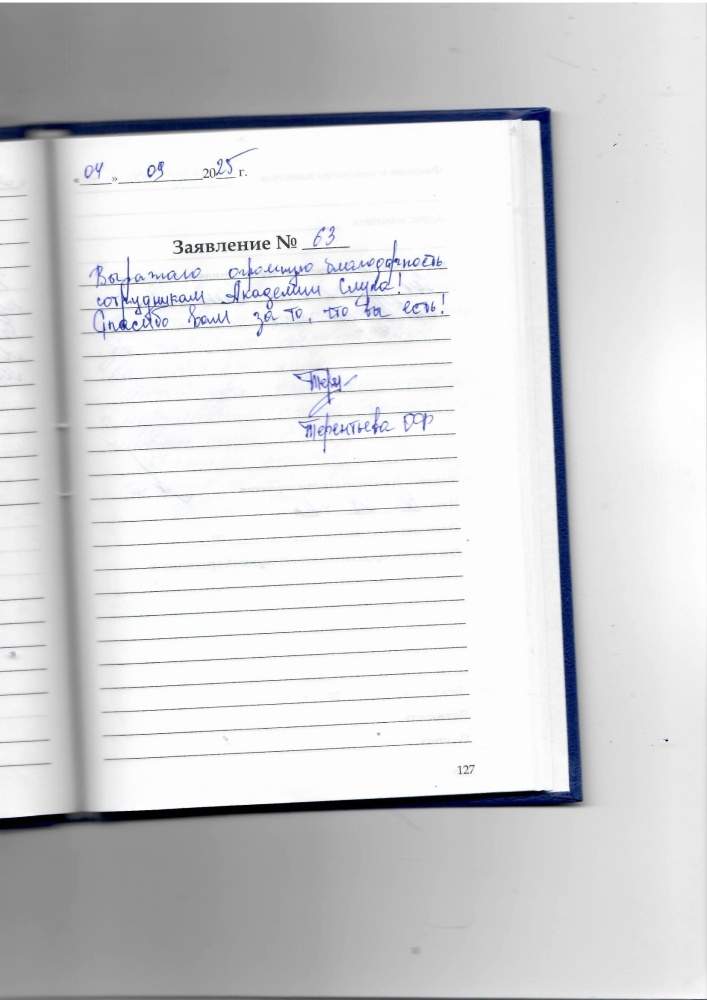 « 04 » 09 2025 г.
Заявление № 63
Выражаю огромную благодарность
сотрудникам Академии Слуха!
Спасибо вам за то, что вы есть!
Терентьева ОФ
127